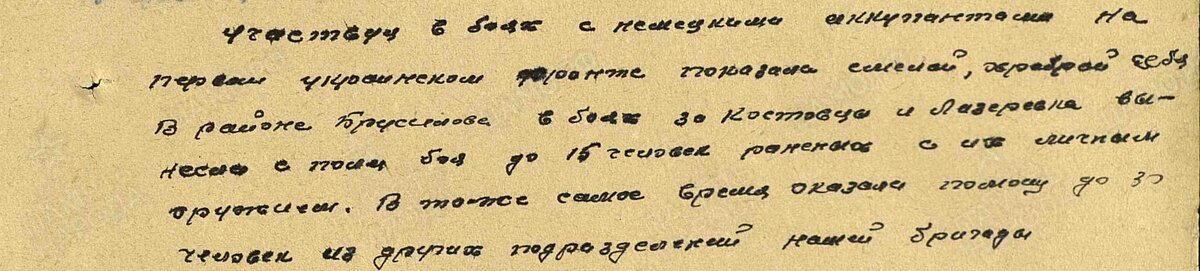 Участвуя в боях с немецкими аккупантами на
первом украинском фронте показала смелой, храброй себя
В районе Брусилова в боях за Костовцы и Лазеревка вы-
несла с поля боя до 15 человек раненых с их личным
оружием. В то-же самое время оказала помощь до 30
человек из других подразделений нашей бригады